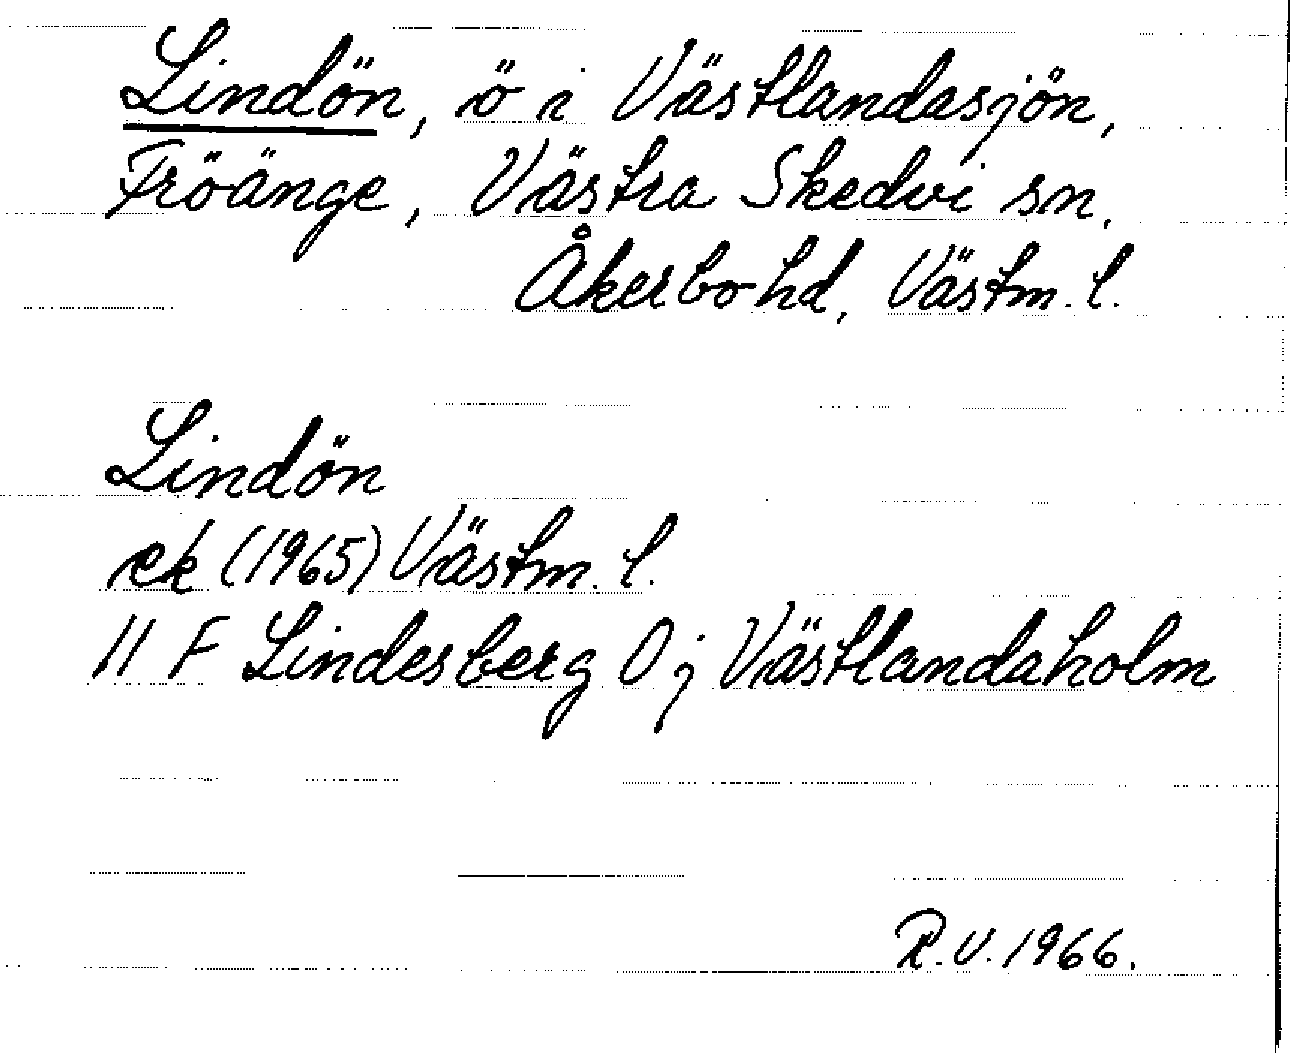 Lindön, ö i Västlandasjön,
Fröänge, Västra Skedvi sn,
Åkerbo hd, Västm. l.
Lindön
ek (1965) Västm. l.
11 F Lindesberg O j Västlandaholm
R.V. 1966.